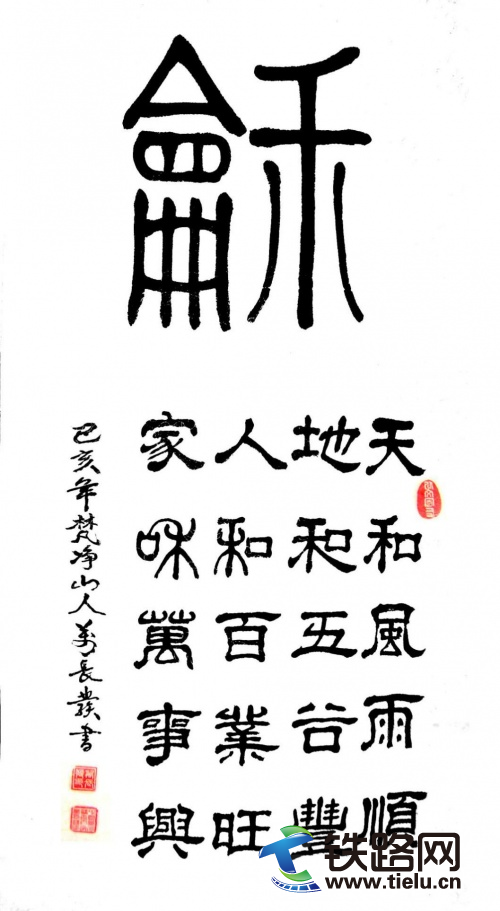 龢
天和風雨順
地和五谷豐
人和百業旺
家和萬事興
己亥年梵净山人萬長發書
铁路网
www.tielu.cn